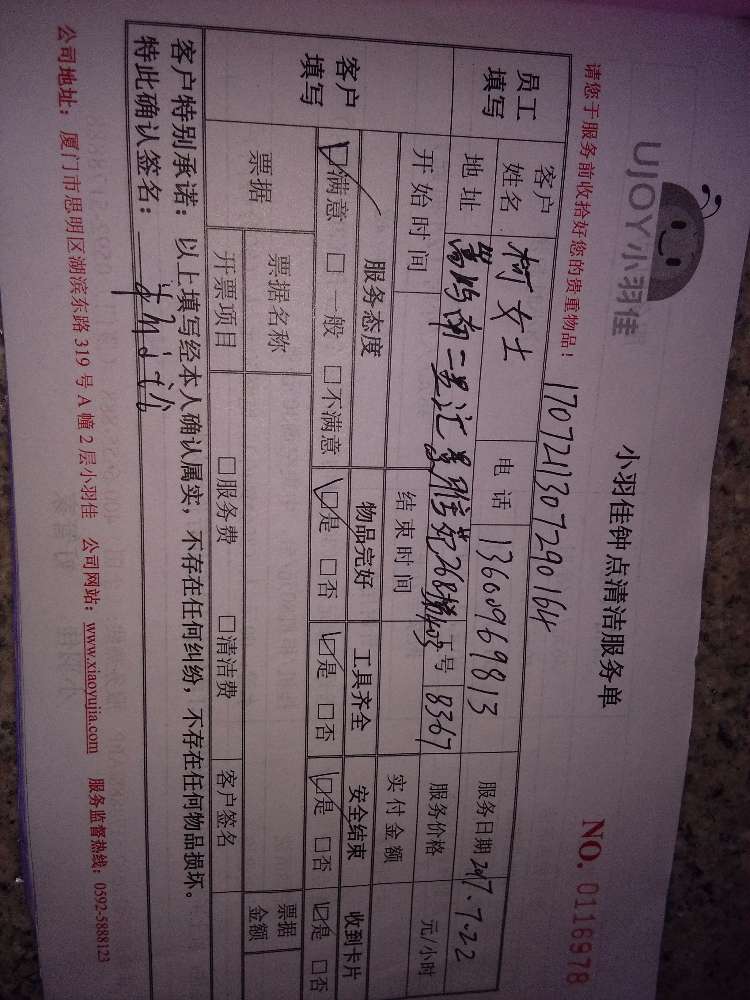 UJOY小羽佳
小羽佳钟点清洁服务单
NO. 0116978
请您于服务前收拾好您的贵重物品！
1707211307290164
员工填写 客户姓名 柯女士 电话 13600969813 服务日期 2017.7.22
地址 南二 268 403 工号 8367 服务价格 元/小时
开始时间 结束时间 实付金额
客户填写 服务态度 物品完好 工具齐全 安全结束 收到卡片
☑满意 □一般 □不满意 ☑是 □否 ☑是 □否 ☑是 □否 ☑是 □否
票据 票据名称 票据金额
开票项目 □服务费 □清洁费 客户签名
客户特别承诺：以上填写经本人确认属实，不存在任何纠纷，不存在任何物品损坏。
特此确认签名：
公司地址：厦门市思明区湖滨东路 319 号 A 幢 2 层小羽佳 公司网站：www.xiaoyujia.com 服务监督热线：0592-5888123